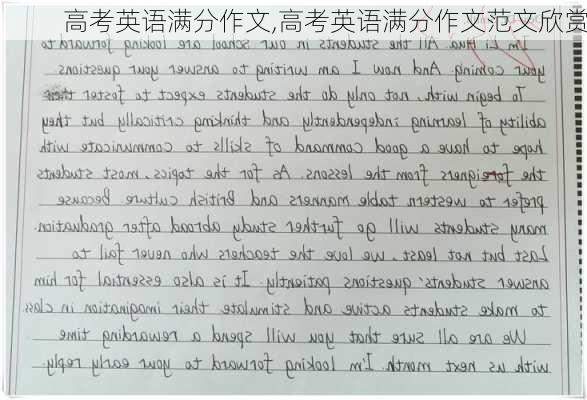 高考英语满分作文,高考英语满分作文范文欣赏
I'm Li Hua. All the students in our school are looking forward to
your coming. And now I am writing to answer your questions.
To begin with, not only do the students expect to foster their
ability of learning independently and thinking critically but they
hope to have a good command of skills to communicate with
the foreigners from the lessons. As for the topics, most students
prefer to western table manners and British culture. Because
many students will go further study abroad after graduation.
Last but not least, we love the teachers who never fail to
answer students' questions patiently. It is also essential for him
to make students active and stimulate their imagination in class.
We are all sure that you will spend a rewarding time
with us next month. I'm looking forward to your early reply.